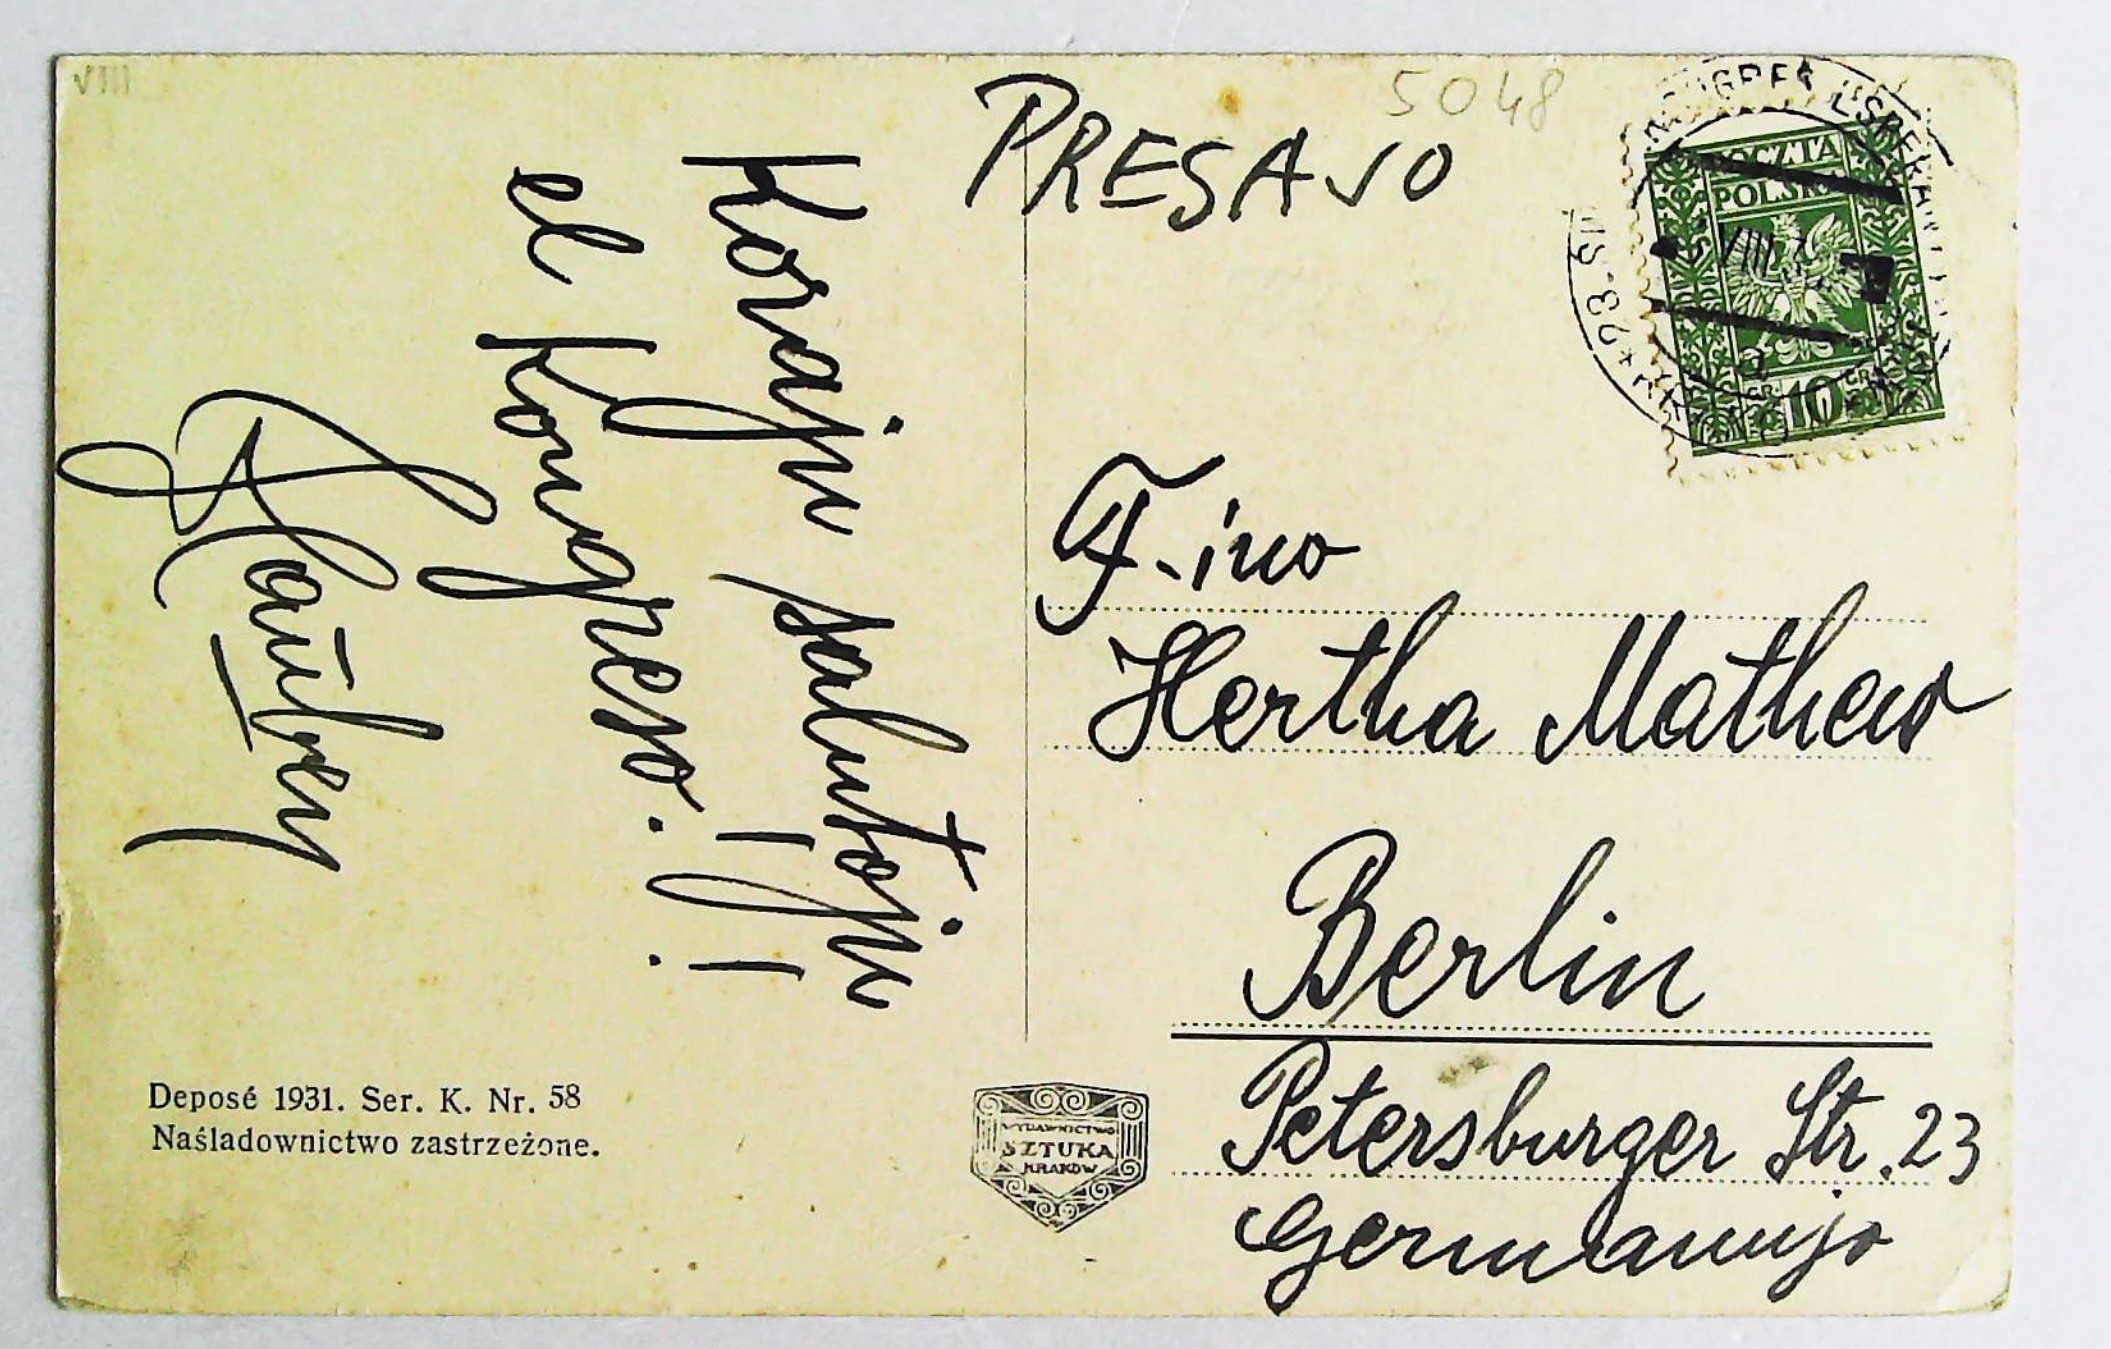 VIII
5048
PRESAJO
POCZTA
POLSKA
VIII
GR. 10 GR.
Korajn salutojn
el Kongreso.!!
F-ino
Hertha Mathew
Berlin
Petersburger Str. 23
Germanujo
Deposé 1931. Ser. K. Nr. 58
Naśladownictwo zastrzeżone.
WYDAWNICTWO
SZTUKA
KRAKÓW